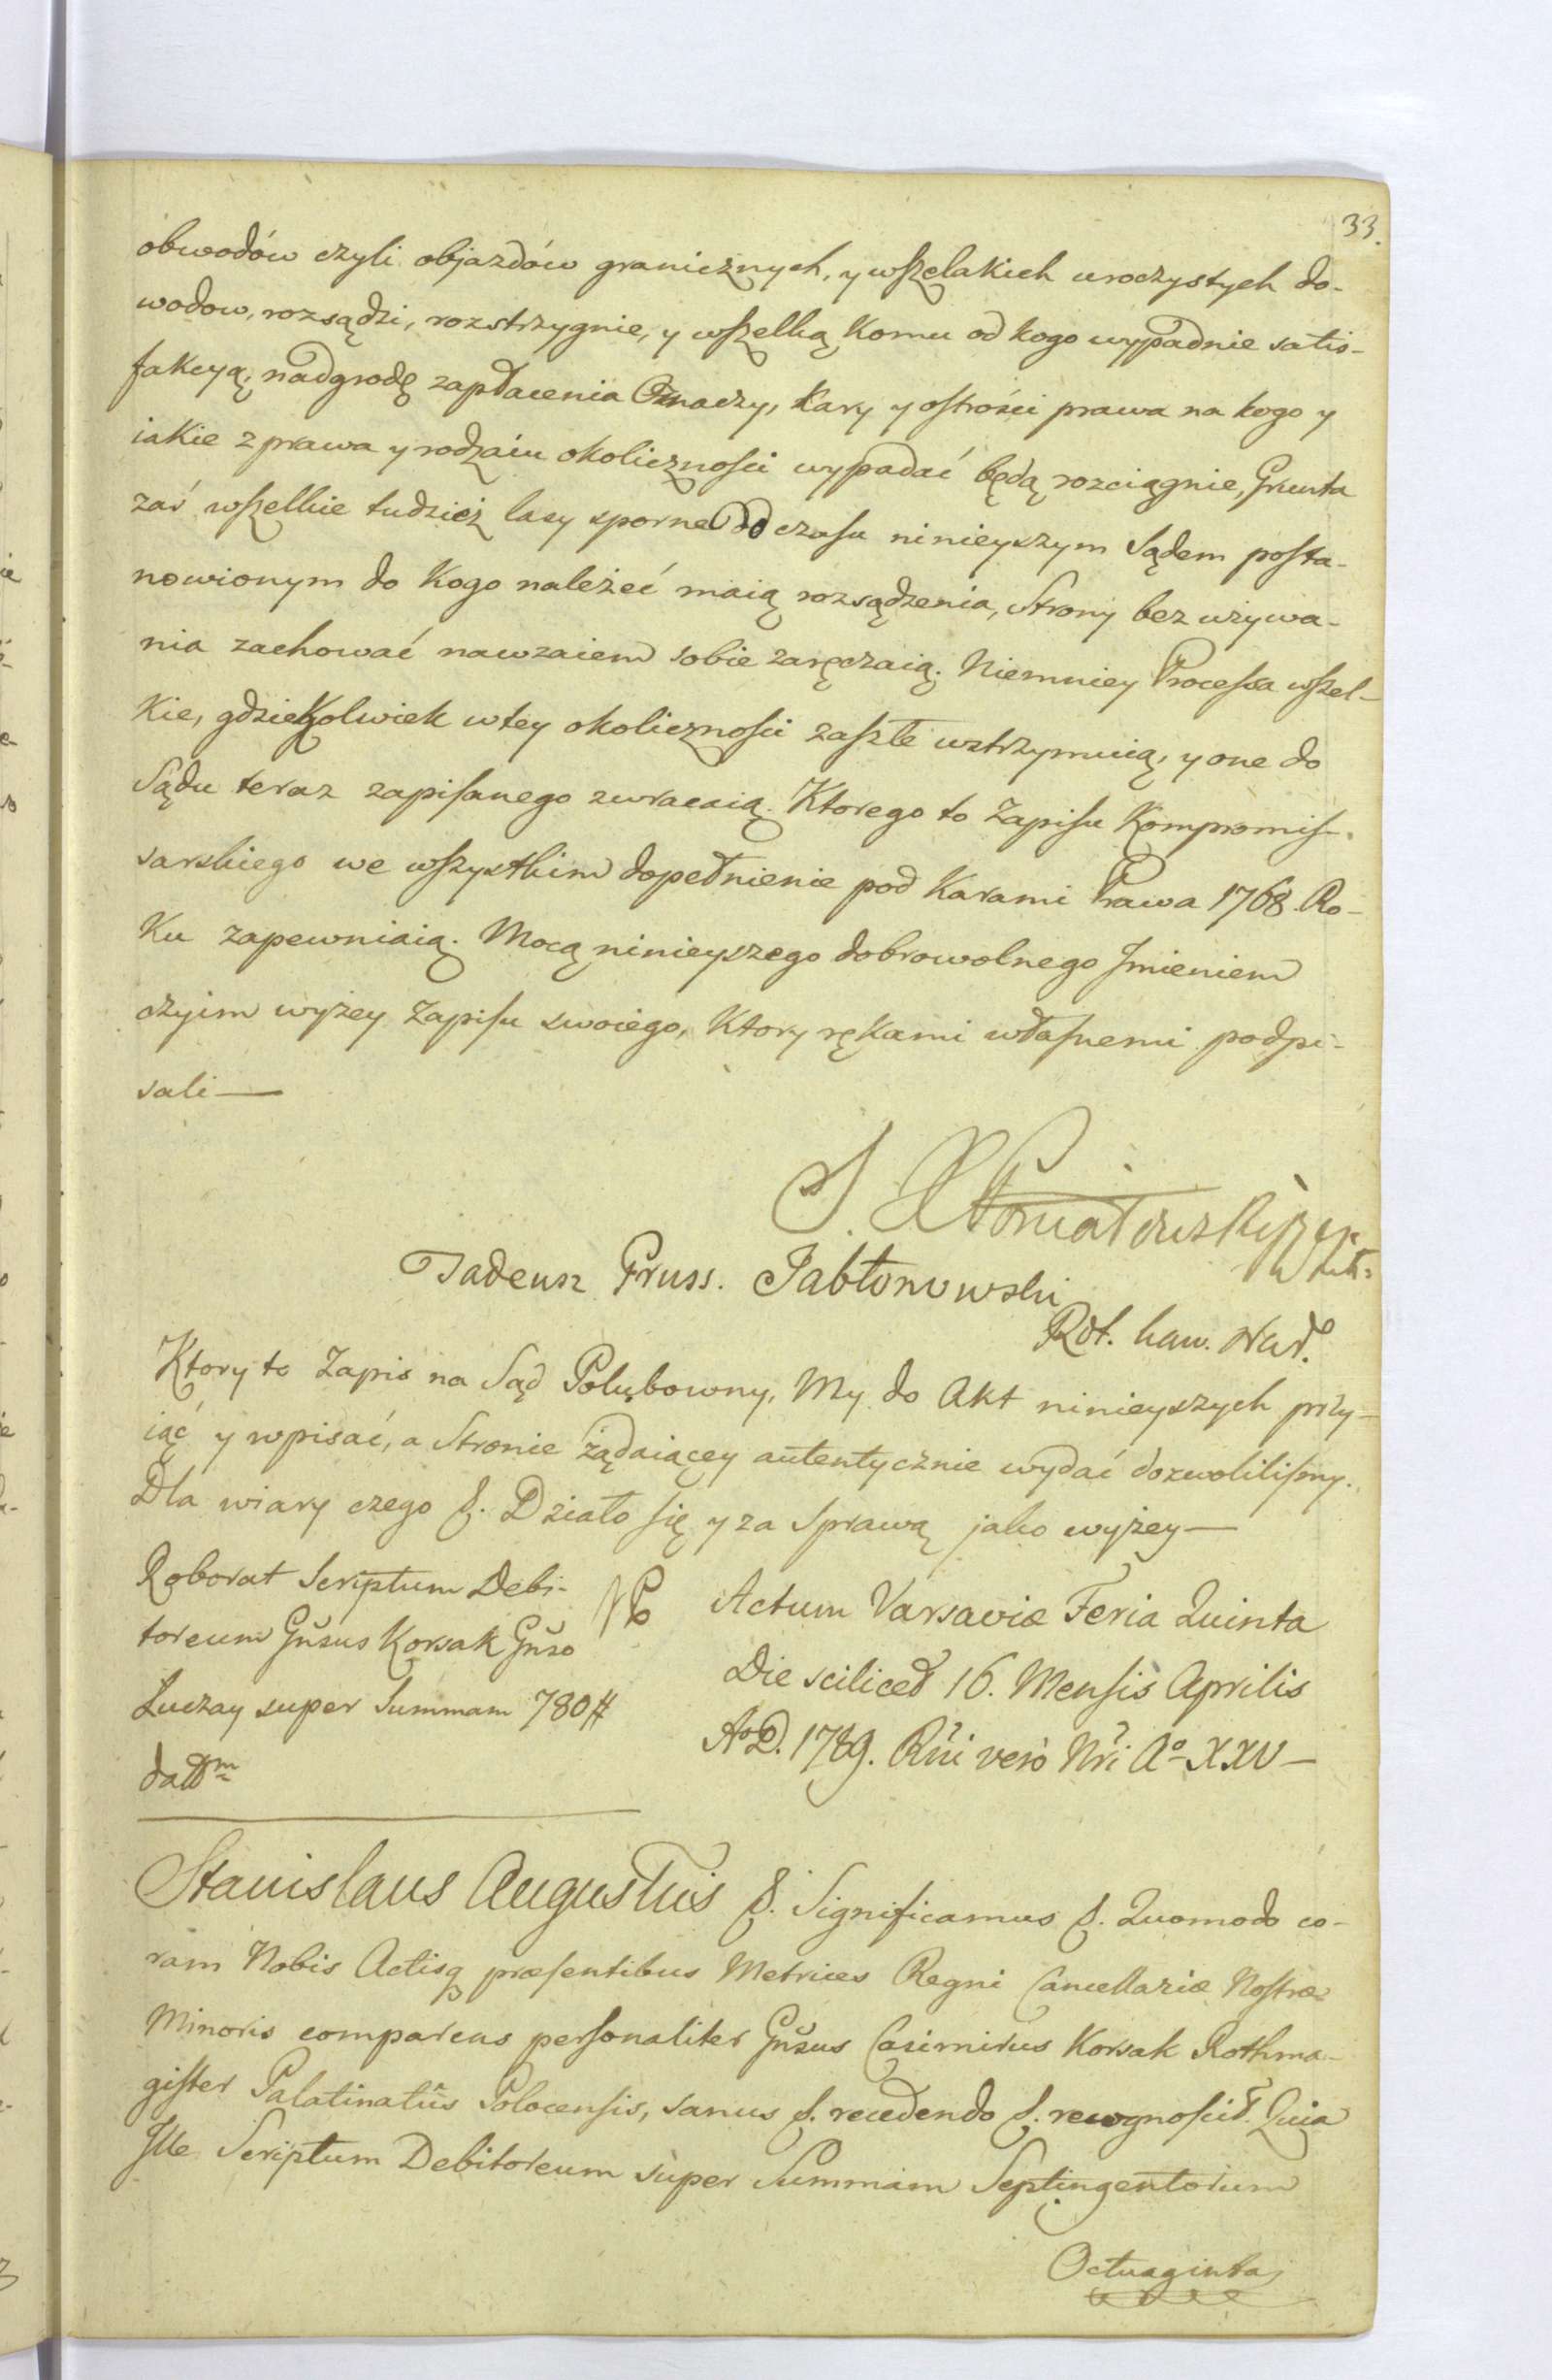 33.
obwodów czyli objazdów granicznych, y wszelakich uroczystych do-
wodow, rozsądzi, rozstrzygnie, y wszelką komu od kogo wypadnie satis-
fakcyą, nadgrodę zapłacenia Oznaczy, kary y ostrości prawa na kogo y
iakie z prawa y rodzaiu okoliczności wypadać będą rozciągnie, Grunta
zaś wszelkie tudzież lasy sporne do czasu ninieyszym Sądem posta-
nowionym do kogo należeć maią rozsądzenia, Strony bez używa-
nia zachować nawzaiem sobie zaręczaią. Niemniey Processa wszel-
kie, gdziekolwiek w tey okoliczności zaszłe wstrzymuią, y one do
Sądu teraz zapisanego zwracaią. Ktorego to Zapisu Kompromis-
sarskiego we wszystkim dopełnienie pod Karami Prawa 1768 Ro-
ku zapewniaią. Mocą ninieyszego dobrowolnego Jmieniem
czyim wyżey Zapisu swoiego, Ktory rękami własnemi podpi-
sali —
S. X Poniatowski
Tadeusz Pruss. Jabłonowski
Rot. kaw. Nar.
Ktory to Zapis na Sąd Polubowny, My do Akt ninieyszych przy-
iąć y wpisać, a Stronie żądaiącey autentycznie wydać dozwolilismy.
Dla wiary czego &. Działo się y za Sprawą jako wyżey —
Roborat Scriptum Debi-
toreum Gnsus Korsak Gnso
Łuczay super Summam 780 #
datt
Actum Varsaviæ Feria Quinta
Die scilicet 16. Mensis Aprilis
AoD. 1789. Rni vero Nri Ao XXV —
Stanislaus Augustus &. Significamus &. Quomodo co-
ram Nobis Actisq præsentibus Metrices Regni Cancellariæ Nostræ
Minoris comparens personaliter Gnsus Casimirus Korsak Rothma-
gister Palatinatûs Polocensis, sanus &. recedendo &. recognoscit. Quia
Ille Scriptum Debitoreum super Summam Septingentorum
Octuaginta